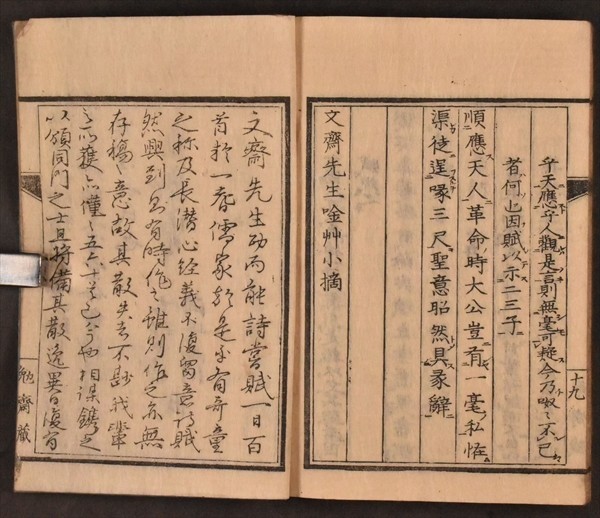 乎天應乎人觀是言則無毫可疑今乃呶〻不已
者何也因賦以示二三子
順應天人革命時大公豈有一毫私怪
渠徒逞喙三尺聖意昭然具彖辭
文齋先生唫艸小摘
十九
文齋先生幼而能詩嘗賦一日百
首於一耆儒家於是乎有奇童
之称及長潜心經義不復留意詩賦
然興到即有時作〻雖則作之亦無
存稿〻意故其散失者不尠我輩
之所獲亦僅〻五六十首已今也相謀鐫之
以頒同門之士且将備其散逸異日復有
勉齋藏